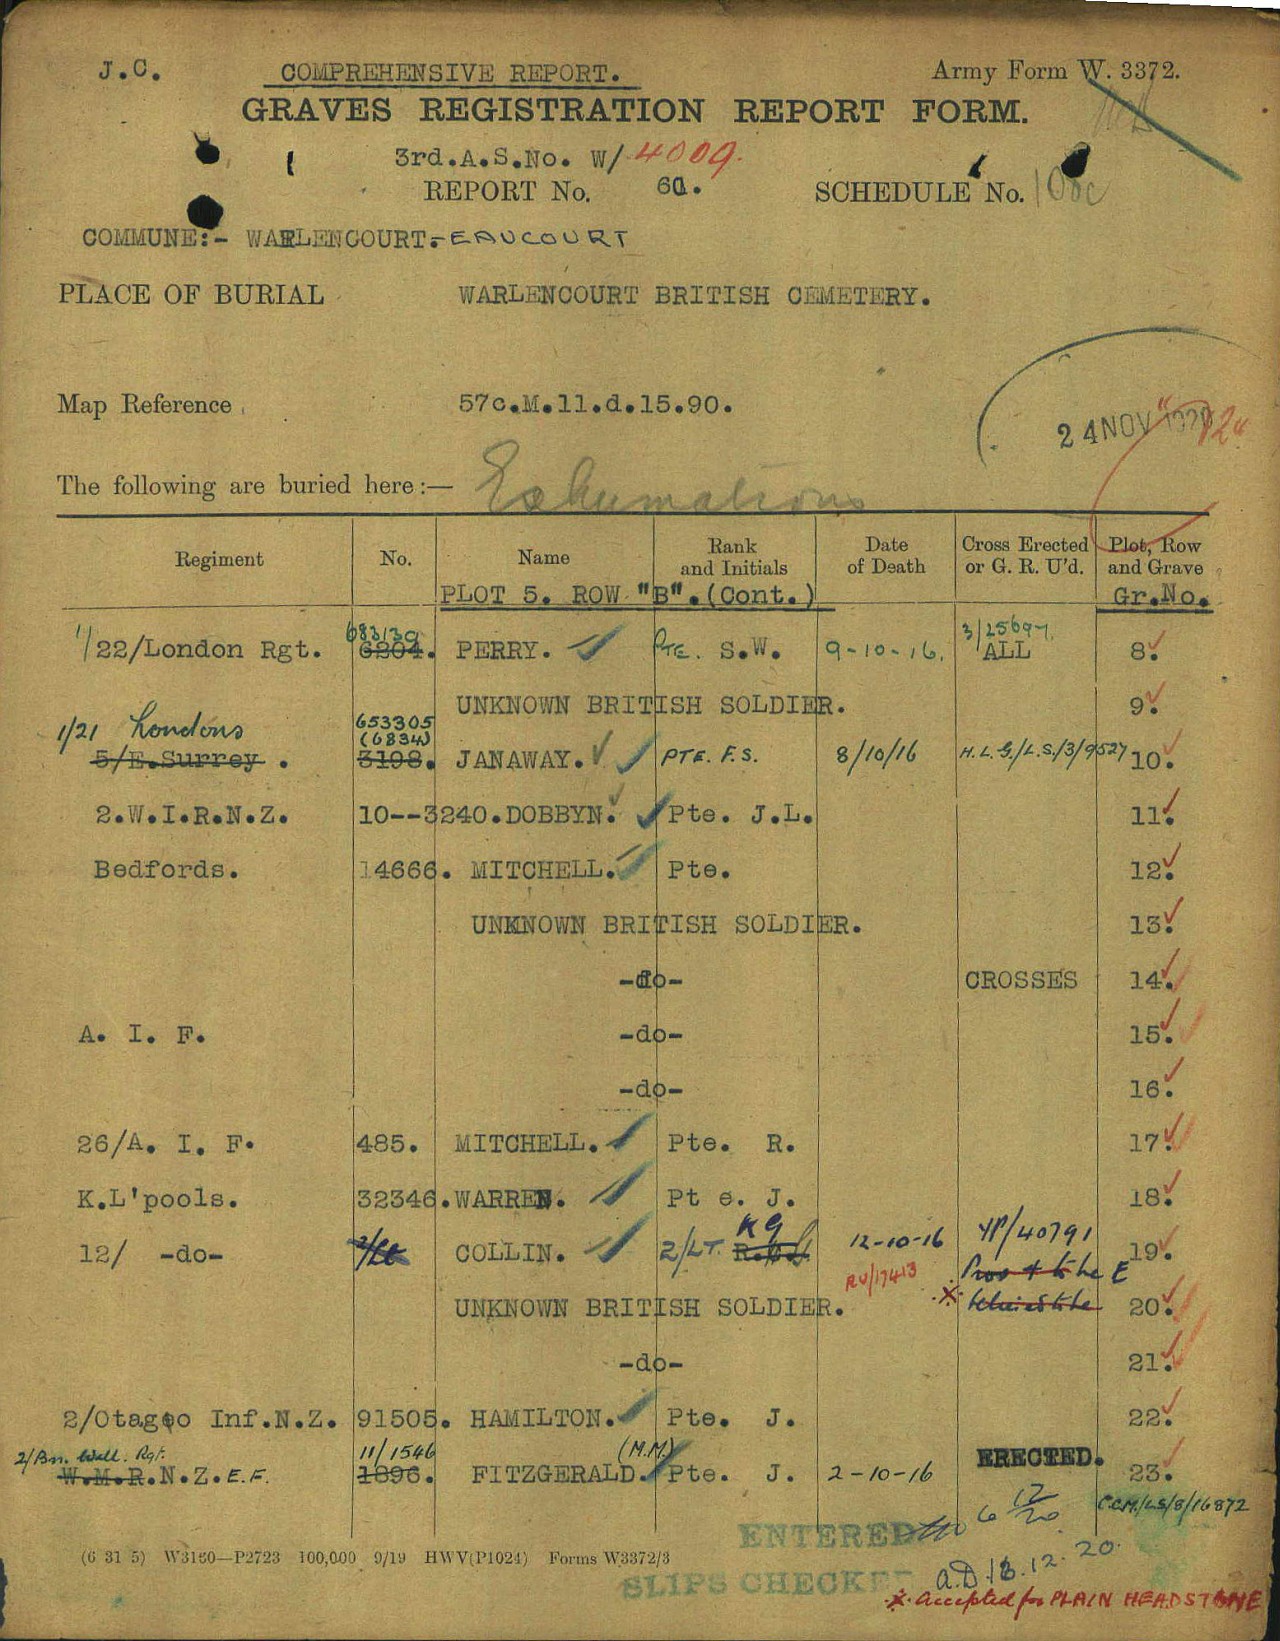 J.C.
COMPREHENSIVE REPORT.
Army Form W. 3372.
GRAVES REGISTRATION REPORT FORM.
3rd.A.S.No. W/ 4009.
REPORT No. 60. SCHEDULE No. 108c
COMMUNE:- WARLENCOURT.-EAUCOURT
PLACE OF BURIAL WARLENCOURT BRITISH CEMETERY.
Map Reference 57c.M.11.d.15.90.
24 NOV 1920
The following are buried here:— Exhumations
Regiment No. Name Rank and Initials Date of Death Cross Erected or G. R. U'd. Plot, Row and Grave
PLOT 5. ROW "B".(Cont.) Gr.No.
683139 3/25697.
1/22/London Rgt. 6204. PERRY. Pte. S.W. 9-10-16. ALL 8.
UNKNOWN BRITISH SOLDIER. 9.
1/21 Londons 653305
(6834)
5/E.Surrey . 3198. JANAWAY. PTE. F.S. 8/10/16 H.L.G./L.S./3/9527 10.
2.W.I.R.N.Z. 10--3240. DOBBYN. Pte. J.L. 11.
Bedfords. 14666. MITCHELL. Pte. 12.
UNKNOWN BRITISH SOLDIER. 13.
-do- CROSSES 14.
A. I. F. -do- 15.
-do- 16.
26/A. I. F. 485. MITCHELL. Pte. R. 17.
K.L'pools. 32346. WARREN. Pt e. J. 18.
12/ -do- 2/Lt COLLIN. 2/LT. K G 12-10-16 YP/40791 19.
RU/17413
UNKNOWN BRITISH SOLDIER. 20.
-do- 21.
2/Otago Inf.N.Z. 91505. HAMILTON. Pte. J. 22.
2/Bn. Well. Rgt. 11/1546 (M.M)
W.M.R.N.Z.E.F. 1896. FITZGERALD. Pte. J. 2-10-16 ERECTED. 23.
C.C.M./LS/8/16872
6 12/20
ENTERED
(6 31 5) W3160—P2723 100,000 9/19 HWV(P1024) Forms W3372/3
SLIPS CHECKED
a.D 13.12.20.
x. Accepted for PLAIN HEADSTONE